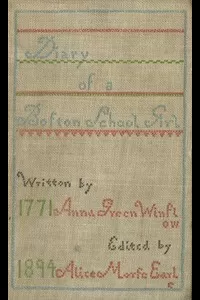 Diary
of a
Boston School Girl
Written by
1771 Anna Green Winsl
ow
Edited by
1894 Alice Morse Earl
e